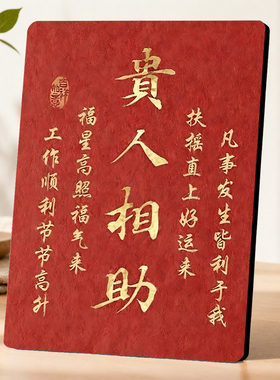 凡事发生皆利于我
扶摇直上好运来
貴人相助
福星高照福气来
工作顺利节节高升